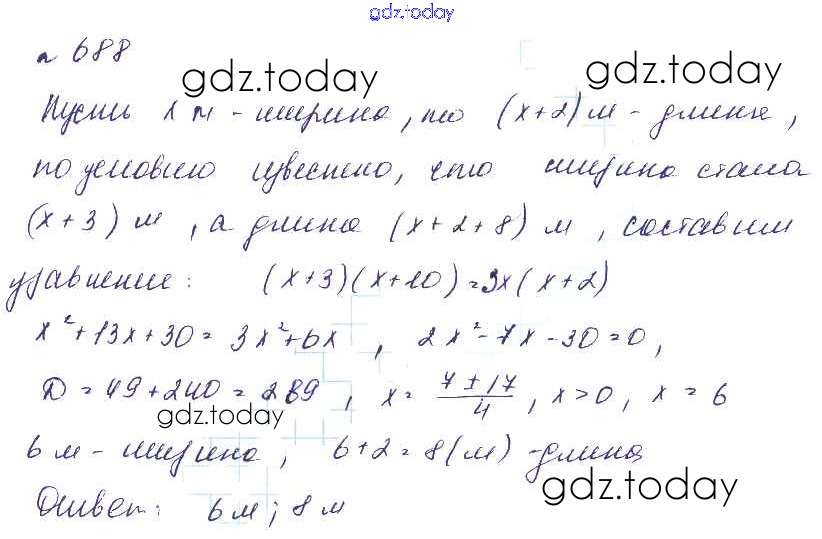 gdz.today
№ 688
gdz.today
gdz.today
Пусть x м - ширина, то (x+2) м - длина,
по условию известно, что ширина стала
(x+3) м, а длина (x+2+8) м, составим
уравнение: (x+3)(x+10)=3x(x+2)
x²+13x+30=3x²+6x, 2x²-7x-30=0,
D=49+240=289, x=(7±17)/4, x>0, x=6
gdz.today
6 м - ширина, 6+2=8(м) - длина
gdz.today
Ответ: 6 м; 8 м